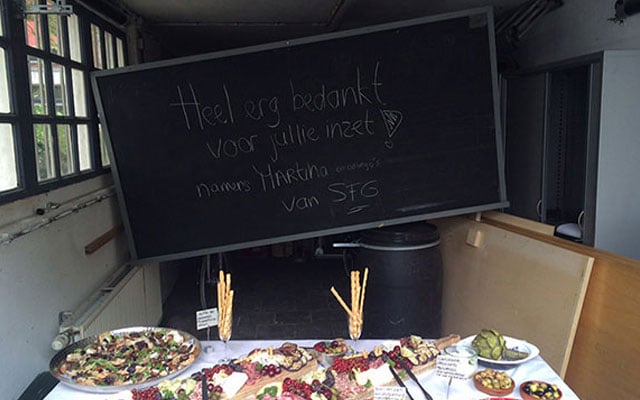 Heel erg bedankt
voor jullie inzet!
namens MARtiNA en collega's
van SFG